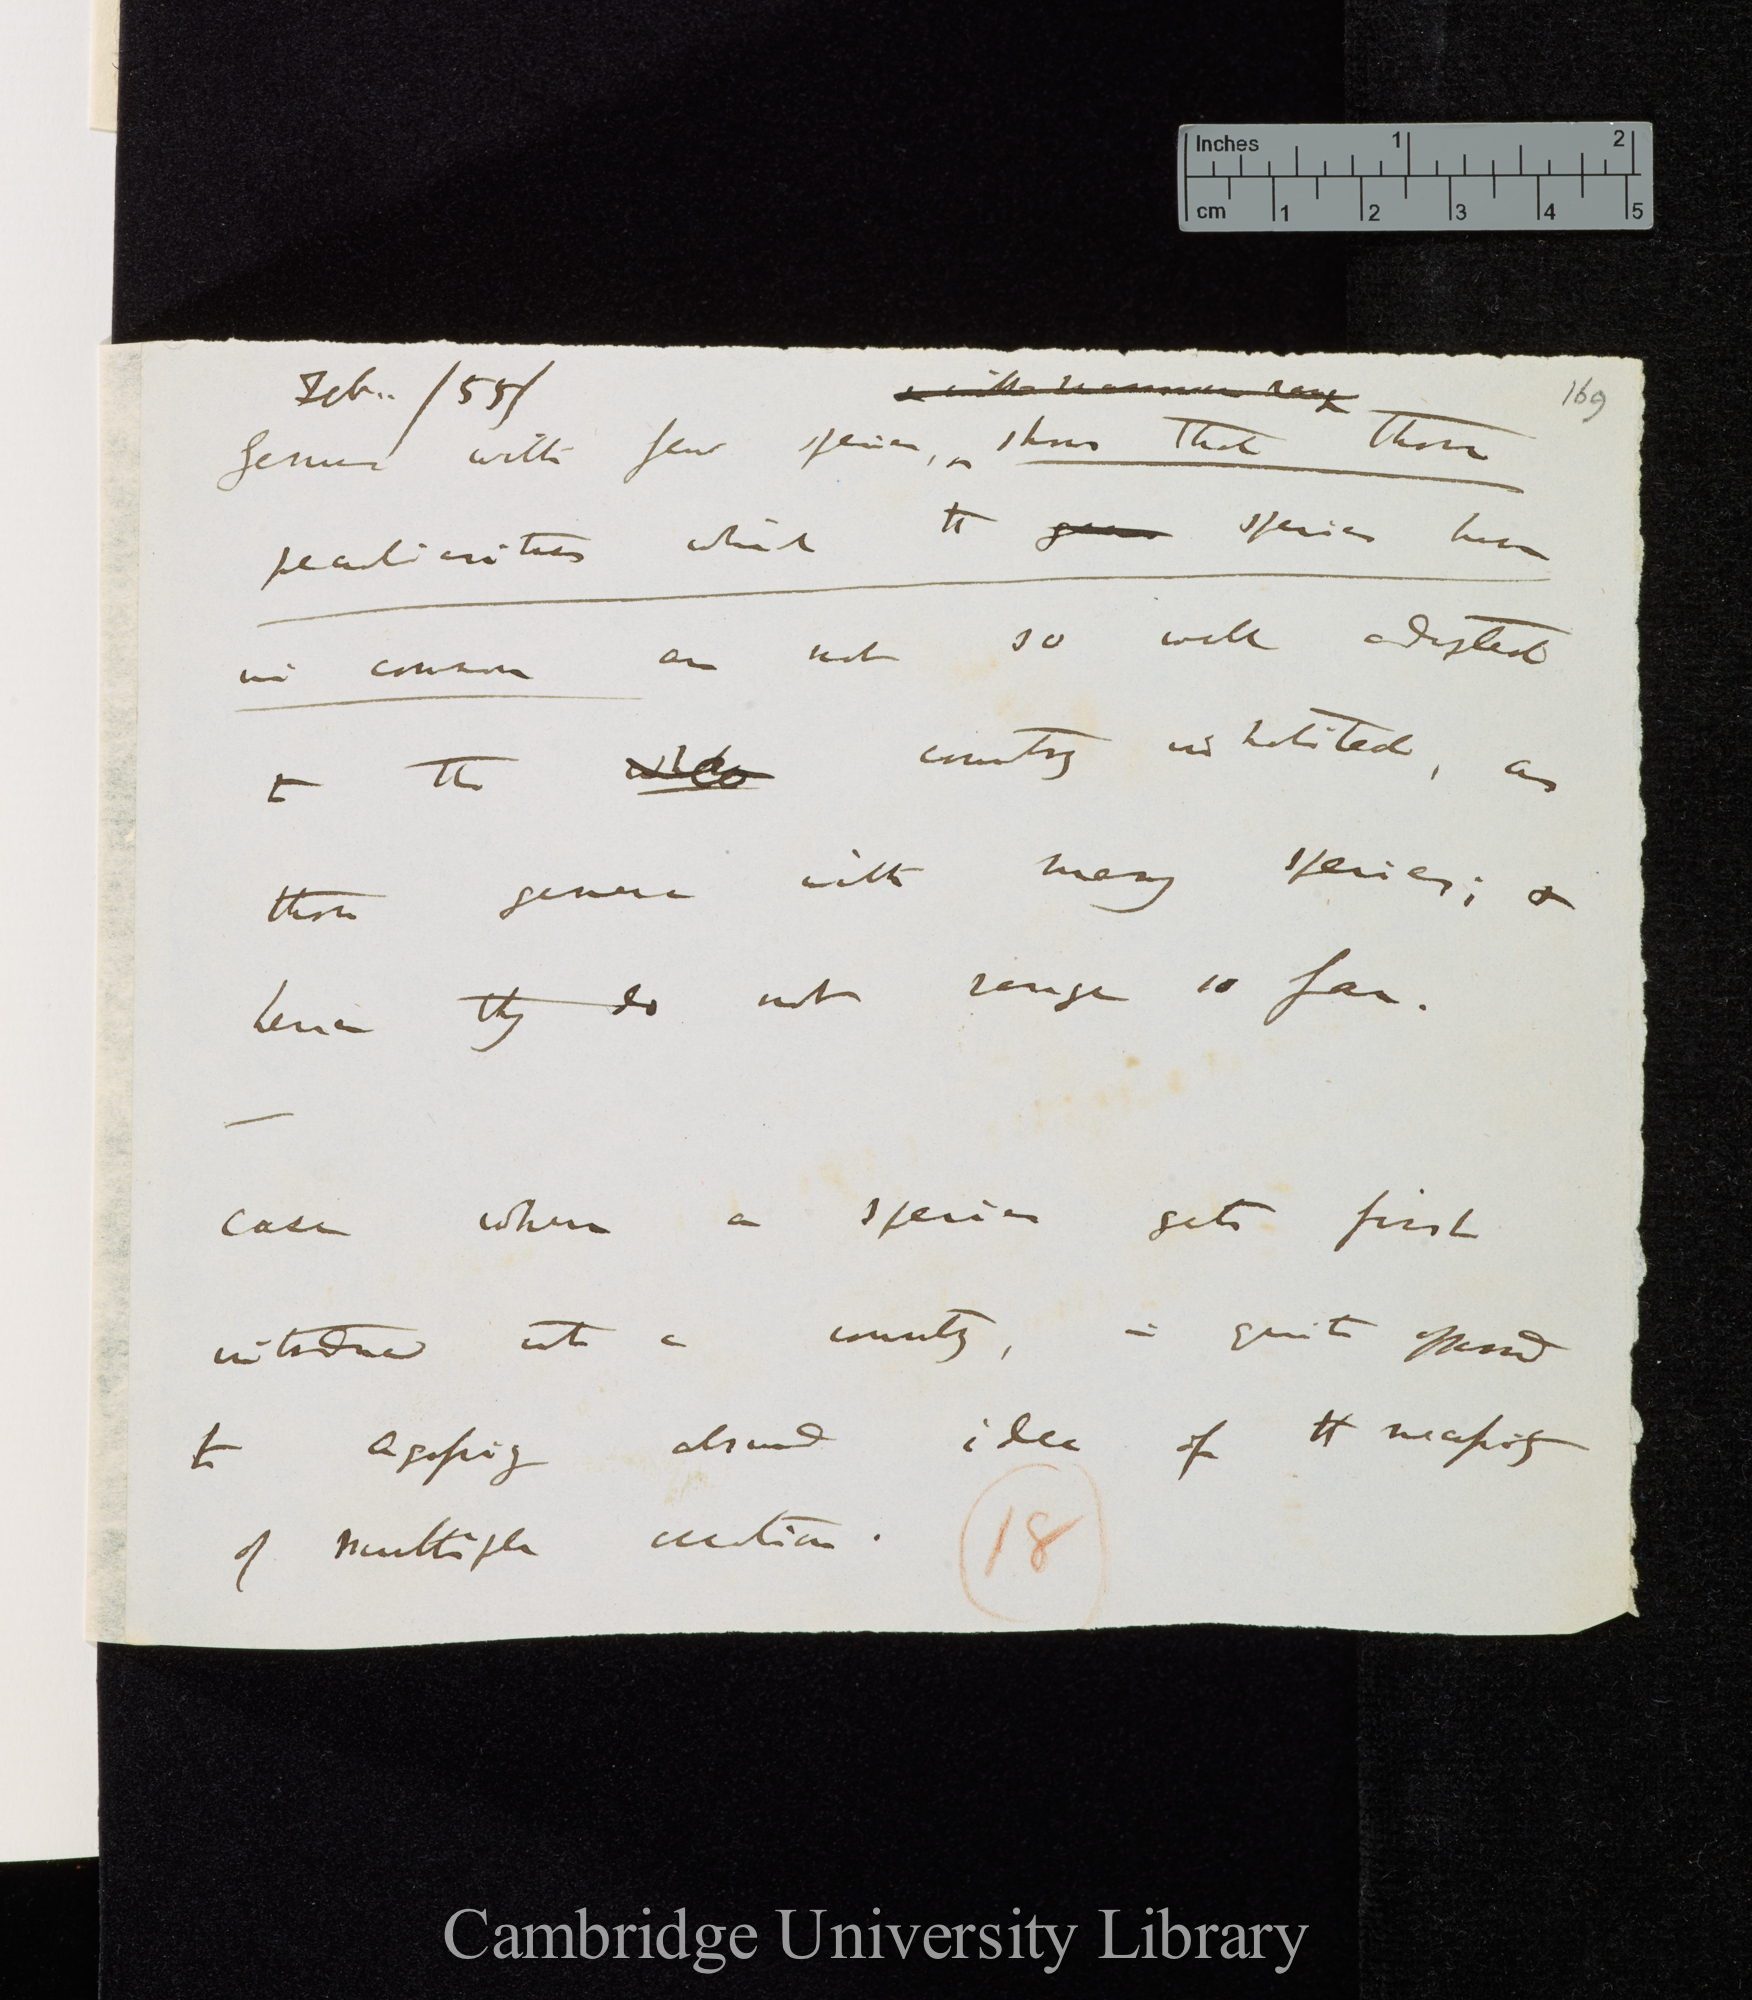 Inches 1 2
cm 1 2 3 4 5
Feb.. /55/
169
& with narrower range
Genera with few species, ^ shows that those
peculiarities which the species have
in common are not so well adapted
to the country inhabited, as
those genera with many species; &
hence they do not range so far.
—
case where a species gets first
introduced into a country, is quite opposed
to Agassiz absurd idea of the necessity
of multiple creation.
18
Cambridge University Library